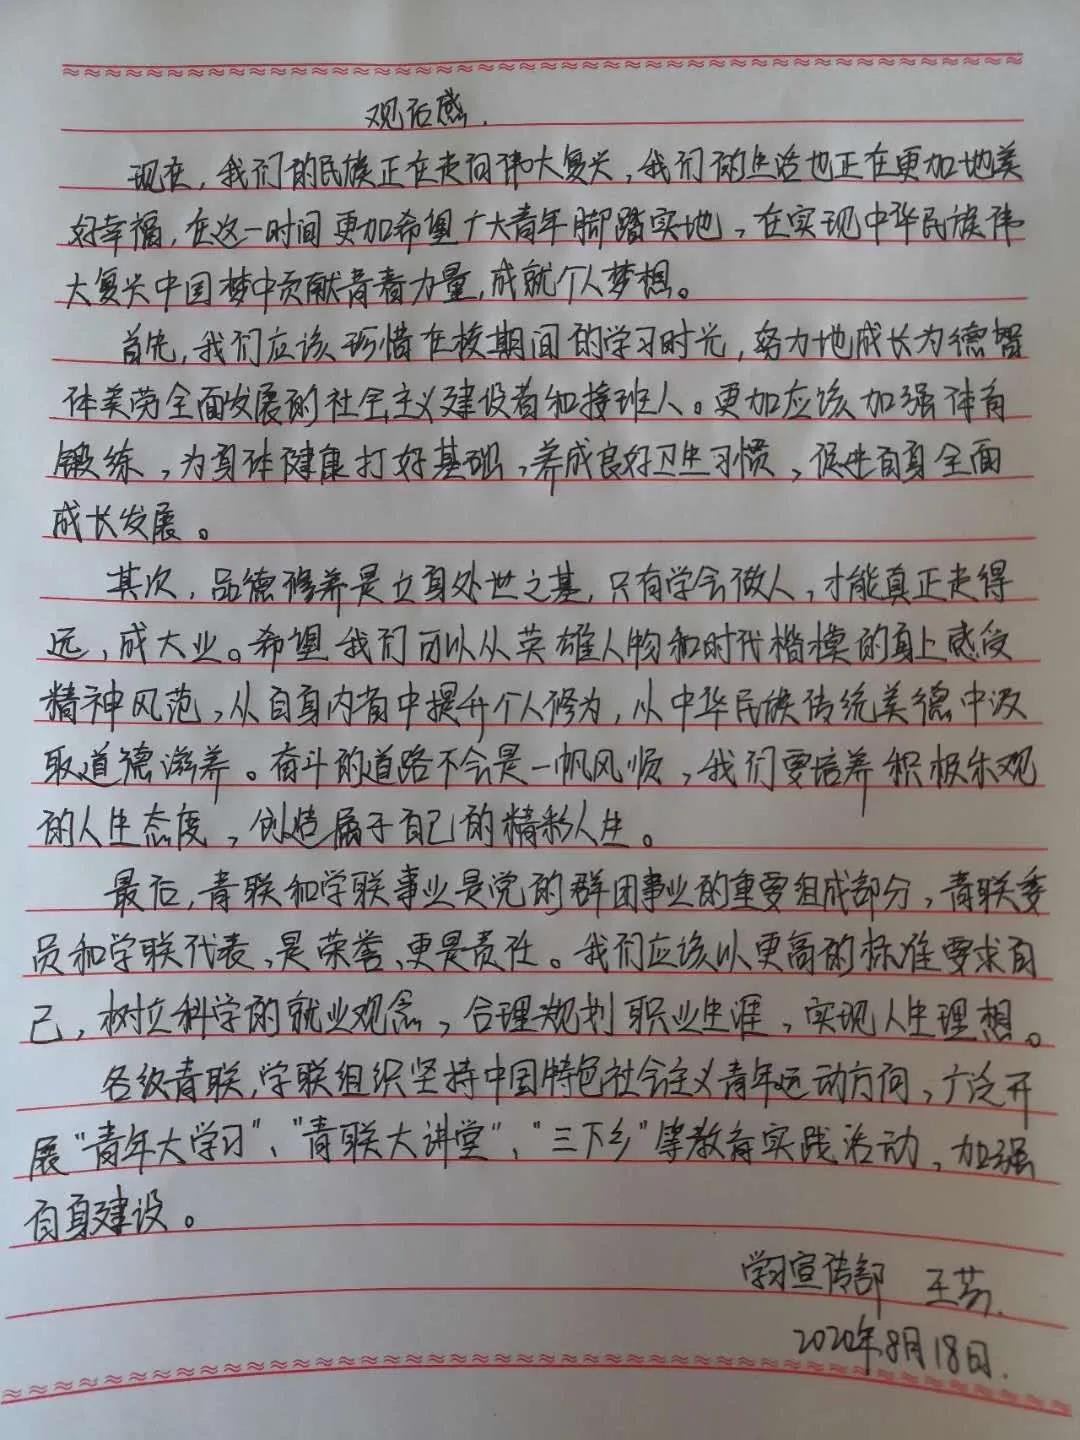 观后感.
现在，我们的民族正在走向伟大复兴，我们的生活也正在更加地美
好幸福，在这一时间更加希望广大青年脚踏实地，在实现中华民族伟
大复兴中国梦中贡献青春力量，成就个人梦想。
首先，我们应该珍惜在校期间的学习时光，努力地成长为德智
体美劳全面发展的社会主义建设者和接班人。更加应该加强体育
锻练，为身体健康打好基础，养成良好卫生习惯，促进自身全面
成长发展。
其次，品德修养是立身处世之基，只有学会做人，才能真正走得
远，成大业。希望我们可以从英雄人物和时代楷模的身上感受
精神风范，从自身内省中提升个人修为，从中华民族传统美德中汲
取道德滋养。奋斗的道路不会是一帆风顺，我们要培养积极乐观
的人生态度，创造属于自己的精彩人生。
最后，青联和学联事业是党的群团事业的重要组成部分，青联委
员和学联代表，是荣誉、更是责任。我们应该以更高的标准要求自
己，树立科学的就业观念，合理规划职业生涯，实现人生理想。
各级青联，学联组织坚持中国特色社会主义青年运动方向，广泛开
展"青年大学习"、"青联大讲堂"、"三下乡"等教育实践活动，加强
自身建设。
学习宣传部 王芬.
2020年8月18日.